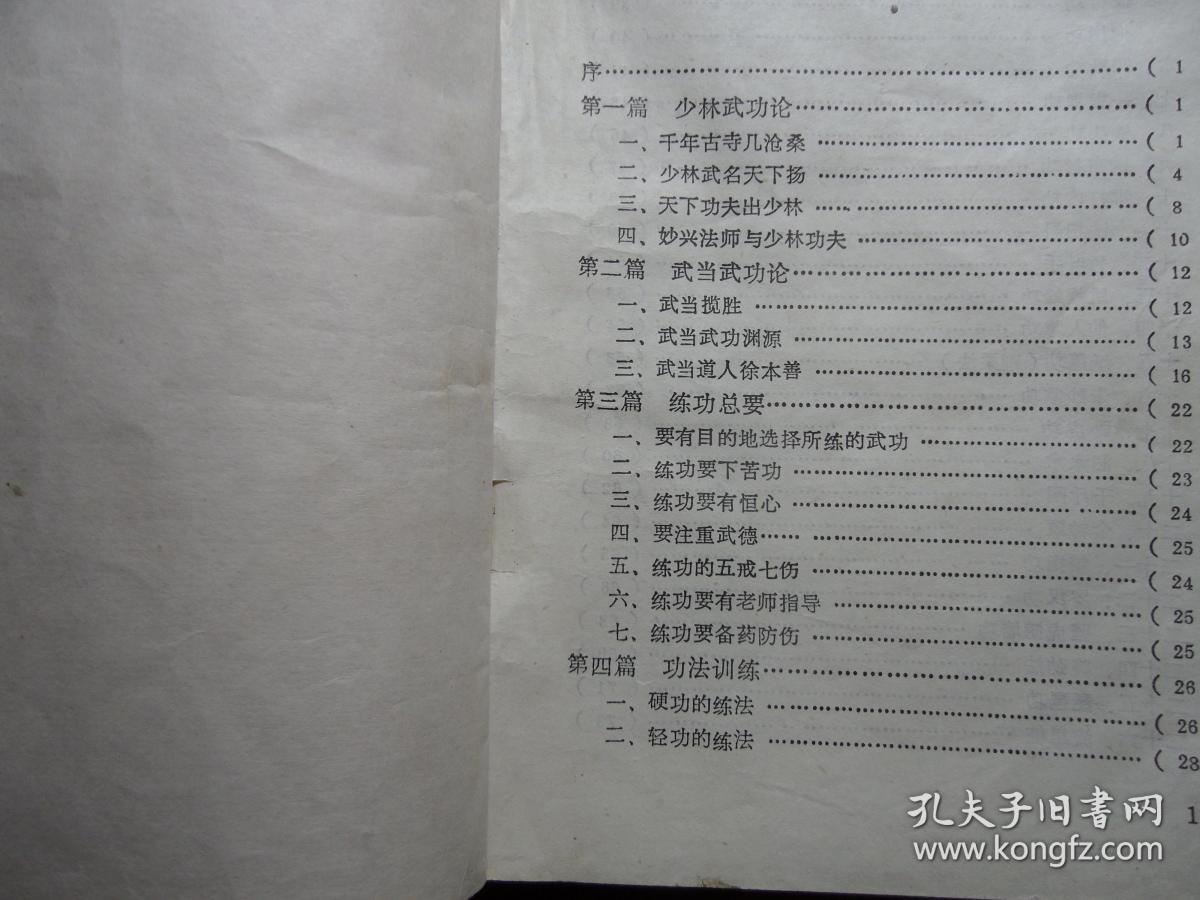 序………………………………………………( 1
第一篇　少林武功论……………………………( 1
一、千年古寺几沧桑 …………………………( 1
二、少林武名天下扬 …………………………( 4
三、天下功夫出少林 …………………………( 8
四、妙兴法师与少林功夫 ……………………( 10
第二篇　武当武功论……………………………( 12
一、武当揽胜 …………………………………( 12
二、武当武功渊源 ……………………………( 13
三、武当道人徐本善 …………………………( 16
第三篇　练功总要………………………………( 22
一、要有目的地选择所练的武功 ……………( 22
二、练功要下苦功 ……………………………( 23
三、练功要有恒心 ……………………………( 24
四、要注重武德…… …………………………( 25
五、练功的五戒七伤 …………………………( 24
六、练功要有老师指导 ………………………( 25
七、练功要备药防伤 …………………………( 25
第四篇　功法训练………………………………( 26
一、硬功的练法 ………………………………( 26
二、轻功的练法 ………………………………( 28
1
孔夫子旧书网
www.kongfz.com